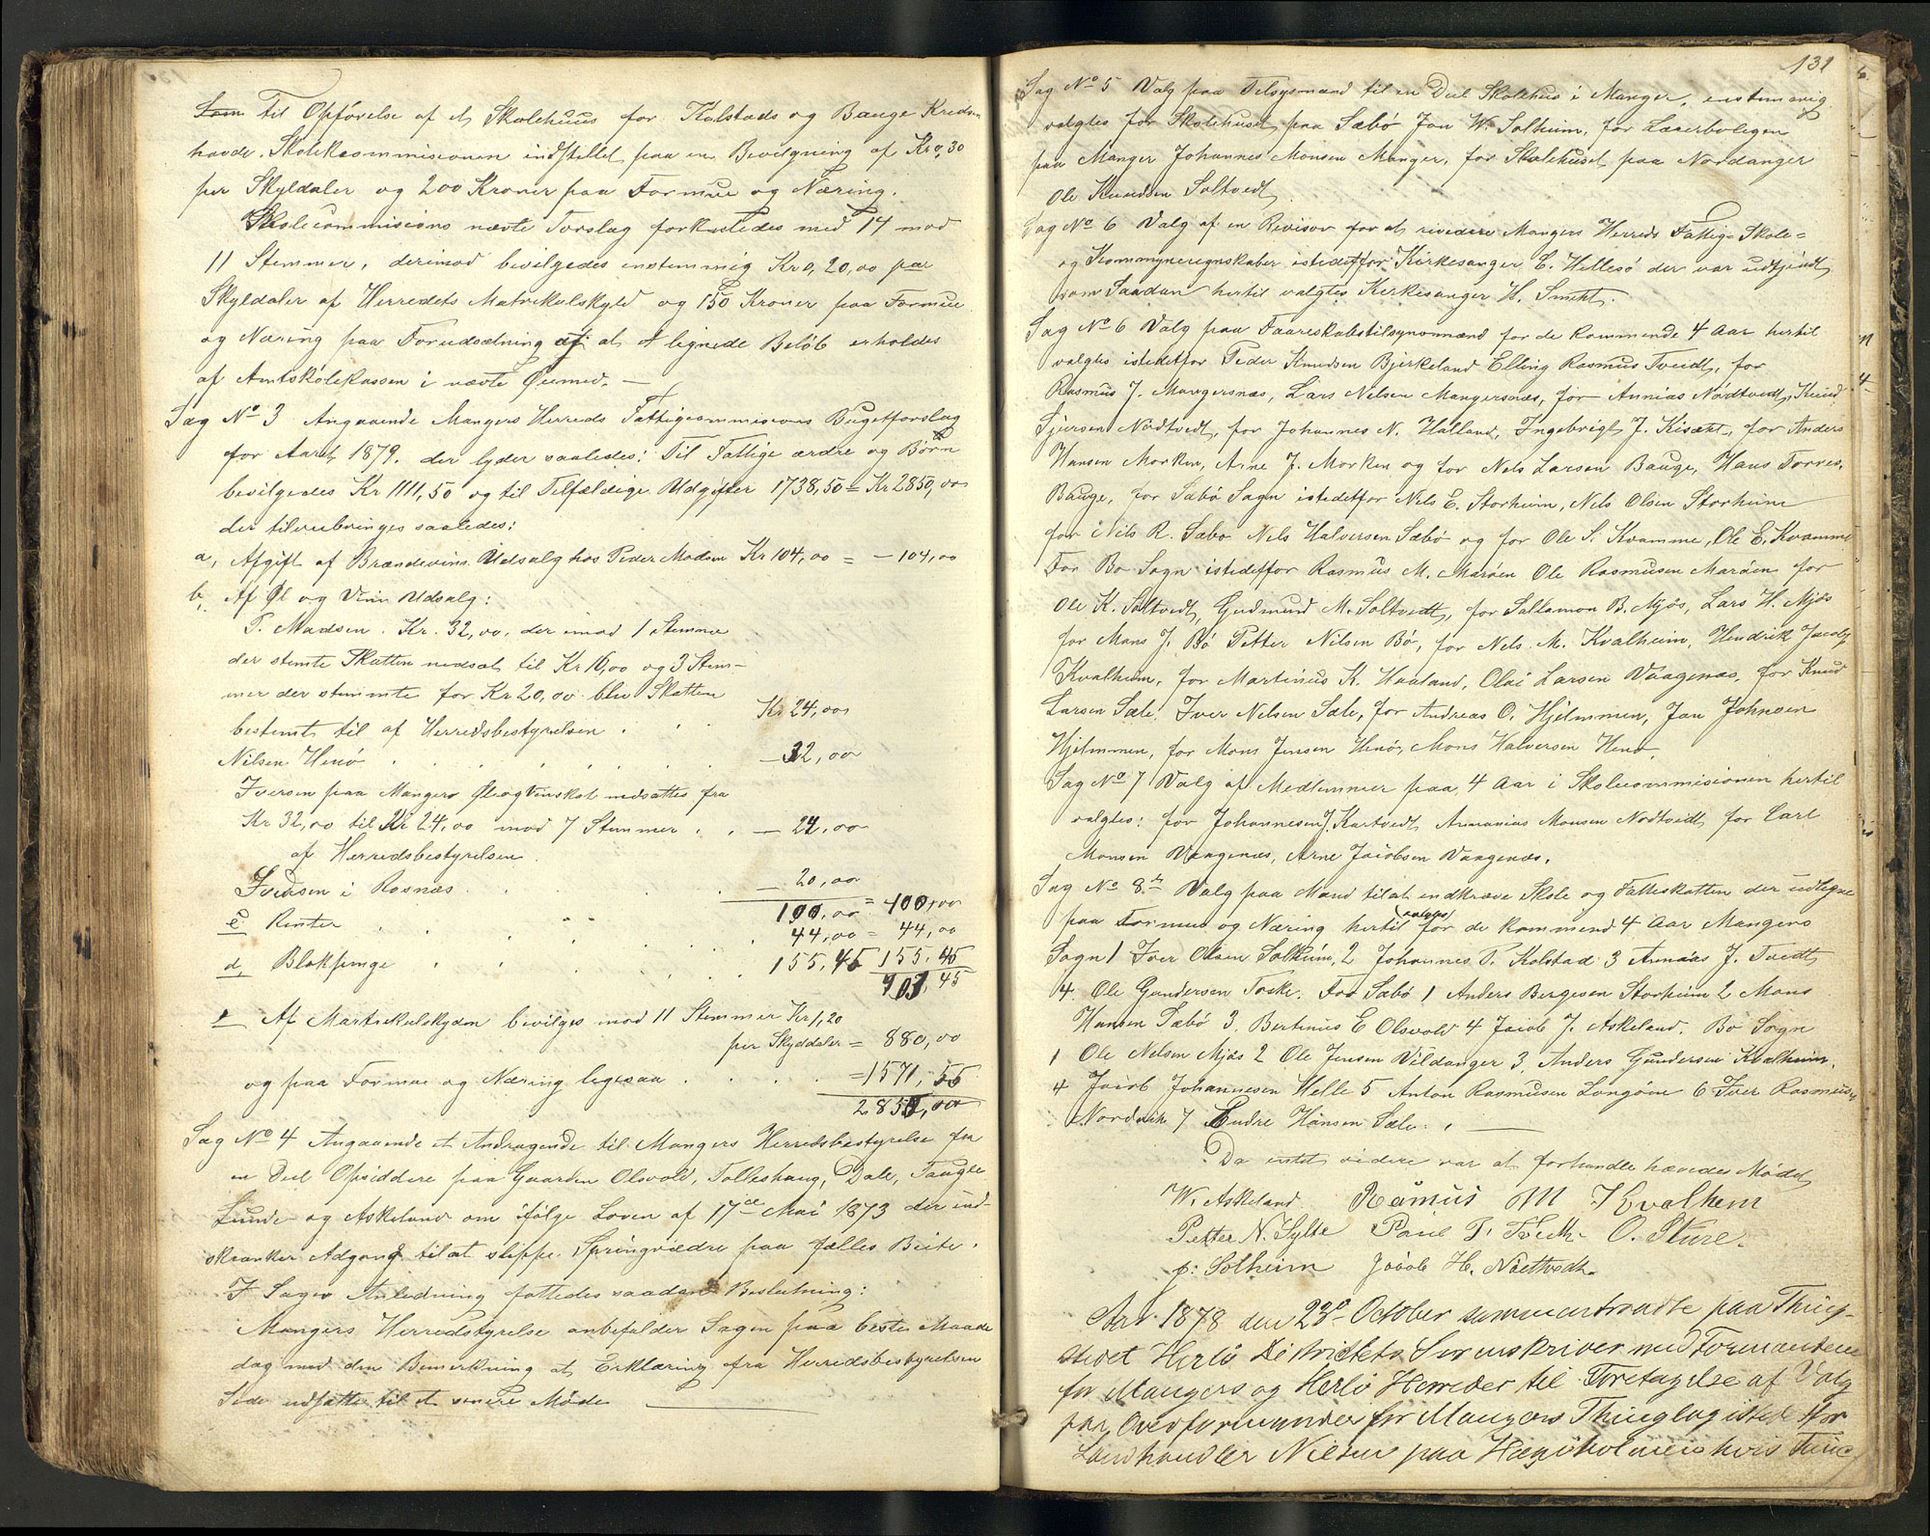 Som til Opförelse af et Skolehuus for Kolstads og Bauge Kreds
havde Skolekommisionen indstillet paa en Bevilgning af Kr 0,30
per Skyldaler og 200 Kroner paa Formue og Næring.
Skolecommisions nævte Forslag forkastedes med 14 mod
11 Stemmer, derimod bevilgedes enstemmig Kr 0,20,00 par
Skyldaler af Herredets Matrikulskyld og 150 Kroner paa Formue
og Næring paa Forudsætning af at et lignede Beløb erholdes
af Amtskolekassen i nævte Øiemed. —
Sag No 3 Angaaende Mangers Herreds Fattigcommisions Bugetforslag
for Aaret 1879. der lyder saaledes: Til Fattige ældre og Børn
bevilgedes Kr 1111,50 og til Tilfældige Udgifter 1738,50 = Kr 2850,00
der tilveibringes saaledes:
a, Afgift af Brændevins Udsalg hos Peder Madsen Kr 104,00 = — 104,00
b, Af Øl og Viin Udsalg:
P. Madsen. Kr. 32,00, der imod 1 Stemme
der stemte Skatten nedsat til Kr 16,00 og 3 Stem-
mer der stemmte for Kr 20,00 blev Skatten
bestemt til af Herredsbestyrelsen . . Kr 24,00
Nilsen Henö . . . . . . . — 32,00
Iversen paa Manger Øl og Vinskat nedsattes fra
Kr 32,00 til Kr 24,00 mod 7 Stemmer . . — 24,00
af Herredsbestyrelsen.
Iversen i Rosnæs . . . — 20,00
100,00 = 100,00
c Renter . . . . . 44,00 = 44,00
d, Blokpenge . . . . . 155,45 155,45
403,45
e Af Martrikulskyden bevilges mod 11 Stemmer Kr 1,20
per Skyddaler = 880,00
og paa Formue og Næring ligesaa . . . . = 1571,55
2850,00
Sag No 4 Angaaende et Andragende til Mangers Herredsbestyrelse fra
en Deel Opsiddere paa Gaarden Olsvold, Tolleshaug, Dale, Taugle
Lunde og Askeland om ifølge Loven af 17de Mai 1873 der ind-
skrænker Adgang til at slippe Springvædre paa fælles Beite.
I Sagens Anledning fattedes saadan Beslutning:
Mangers Herredstyrelse anbefalder Sagen paa beste Maade
dog med den Bemerkning at Erklæring fra Herredsbestyrelsen
Side udsættes til et senere Møde
131
Sag No 5 Valg paa Tilsynsmænd til en Deel Skolehus i Manger, enstemmig
valgtes for Skolehuset paa Sæbö Jon W. Solheim, for Lærerboligen
paa Manger Johannes Monsen Manger, for Skolehuset paa Nordanger
Ole Knudsen Soltvedt
Sag No 6 Valg af en Revisor for at revidere Mangers Herreds Fattig- Skole=
og Kommuneregnskaber istedetfor Kirkesanger E. Hellesö der var udtjendt
som Saadan hertil valgtes Kirkesanger H. Smith.
Sag No 6 Valg paa Faareskabstilsynsmænd for de kommende 4 Aar hertil
valgtes istedetfor Peder Knudsen Bjerkeland Elling Rasmus Tveidt, for
Rasmus J. Mangersnæs, Lars Nelsen Mangersnæs, for Annias Nödtvedt, Knud
Sjursen Nödtvedt, for Johannes N. Halland, Ingebrigt J. , for Anders
Hansen Morken, Arne J. Morken og for Nels Larsen Bauge, Hans Torres.
Bauge, for Sæbö Sogn istedetfor Nels E. Storheim, Nels Olsen Storheim
for Nils R. Sæbo Nels Halversen Sæbö og for Ole S. Kvamme, Ole E. Kvamme
For Bo Sogn istedetfor Rasmus M. Maröen Ole Rasmusen Maröen for
Ole K. Soltvedt, Gudmund M. Soltvedt, for Sallemon B. Mjös, Lars H. Mjös
for Mons J. Bö Petter Nilsen Bö, for Nels M. Kvalheim, Hendrik Jacob
Kvalheim, for Martinus K. Haaland, Olai Larsen Vaagenæs, for Knud
Larsen Sæle, Iver Nelsen Sæle, for Andreas O. Hjelmmen, Jan Johnsen
Hjelmmen, for Mons Jensen Henö, Mons Halversen Henö
Sag No 7 Valg af Medlemmer paa 4 Aar i Skolecommisionen hertil
valgtes: for Johannesen J. Kartvedt Annanias Monsen Nodtvedt for Carl
Monsen Vaagenæs, Arne Jacobsen Vaagenæs.
Sag No 8de Valg paa Mænd til at indkræve Skole og Fatteskatten der udlignes
paa Formue og Næring hertil valgtes for de kommend 4 Aar Mangers
Sogn 1 Iver Olsen Solheim, 2 Johannes P. Kolstad 3 Annias J. Tvedt
4. Ole Gundersen Toske. For Sæbö 1 Anders Bergesen Storheim 2 Mons
Hansen Sæbö 3. Bertinus E Olsvold 4 Jacob J. Askeland. Bo Sogn
1 Ole Nelsen Mjös 2 Ole Jensen Vildanger 3, Anders Gundersen Kvalheim,
4 Jacob Johannesen Helle 5 Anton Rasmusen Longöen 6 Iver Rasmusen
Nordvik 7 Endre Hansen Sæle. —
Da intet videre var at forhandle hævedes Mödet
W. Askeland Rasmus M Kvalhem
Petter N. Sylte Povel P. Tvedt. O. Sture.
J: Solheim Jacob H. Nöttvedt
Aar 1878 den 23de October sammentraadte paa Thing-
stedet Herlö Distriktets Sorenskriver med Formændene
for Mangers og Herlö Herreder til Foretagelse af Valg
paa Overformynder for Mangers Thinglag istedetfor
Landhandler Nilsen paa Hægholmen hvis Time